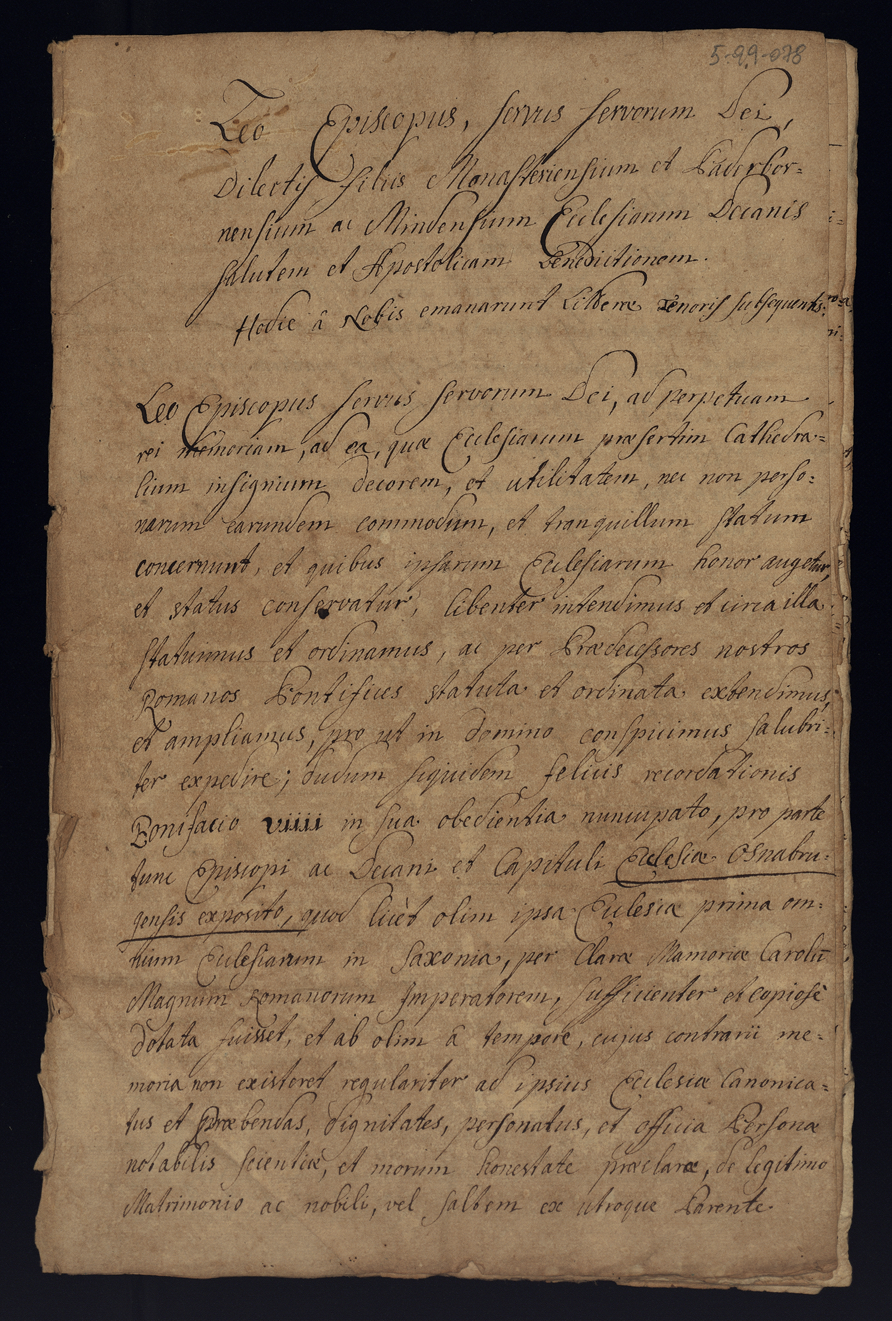 5-99-078
Leo Episcopus, servus servorum Dei,
Dilectis filiis Monasteriensium et Paderbor=
nensium ac Mindensium Ecclesiarum Decanis
salutem et Apostolicam Benedictionem.
Hodie â Nobis emanarunt Litteræ tenoris subsequentis:
Leo Episcopus servus servorum Dei, ad perpetuam
rei memoriam, ad ea, quæ Ecclesiarum præsertim Cathedra=
lium insignium decorem, et utilitatem, nec non perso=
narum earundem commodum, et tranquillum statum
concernunt, et quibus ipsarum Ecclesiarum honor augetur,
et status conservatur, libenter intendimus et circa illa
statuimus et ordinamus, ac per Prædecessores nostros
Romanos Pontifices statuta et ordinata extendimus,
et ampliamus, pro ut in Domino conspicimus salubri=
ter expedire; dudum siquidem felicis recordationis
Bonifacio VIIII in sua obedientia nuncupato, pro parte
tunc Episcopi ac Decani et Capituli Ecclesiæ Osnabru=
gensis exposito, quod licèt olim ipsa Ecclesia prima om=
nium Ecclesiarum in Saxonia, per Claræ Mamoriæ Carolū
Magnum Romanorum Imperatorem, sufficienter et copiosè
dotata fuisset, et ab olim â tempore, cujus contrarii me=
moria non existeret regulariter ad ipsius Ecclesiæ Canonica=
tus et Præbendas, dignitates, personatus, et officia Personæ
notabilis scientiæ, et morum honestate præclaræ, de legitimo
Matrimonio ac nobili, vel saltem ex utroque Parente